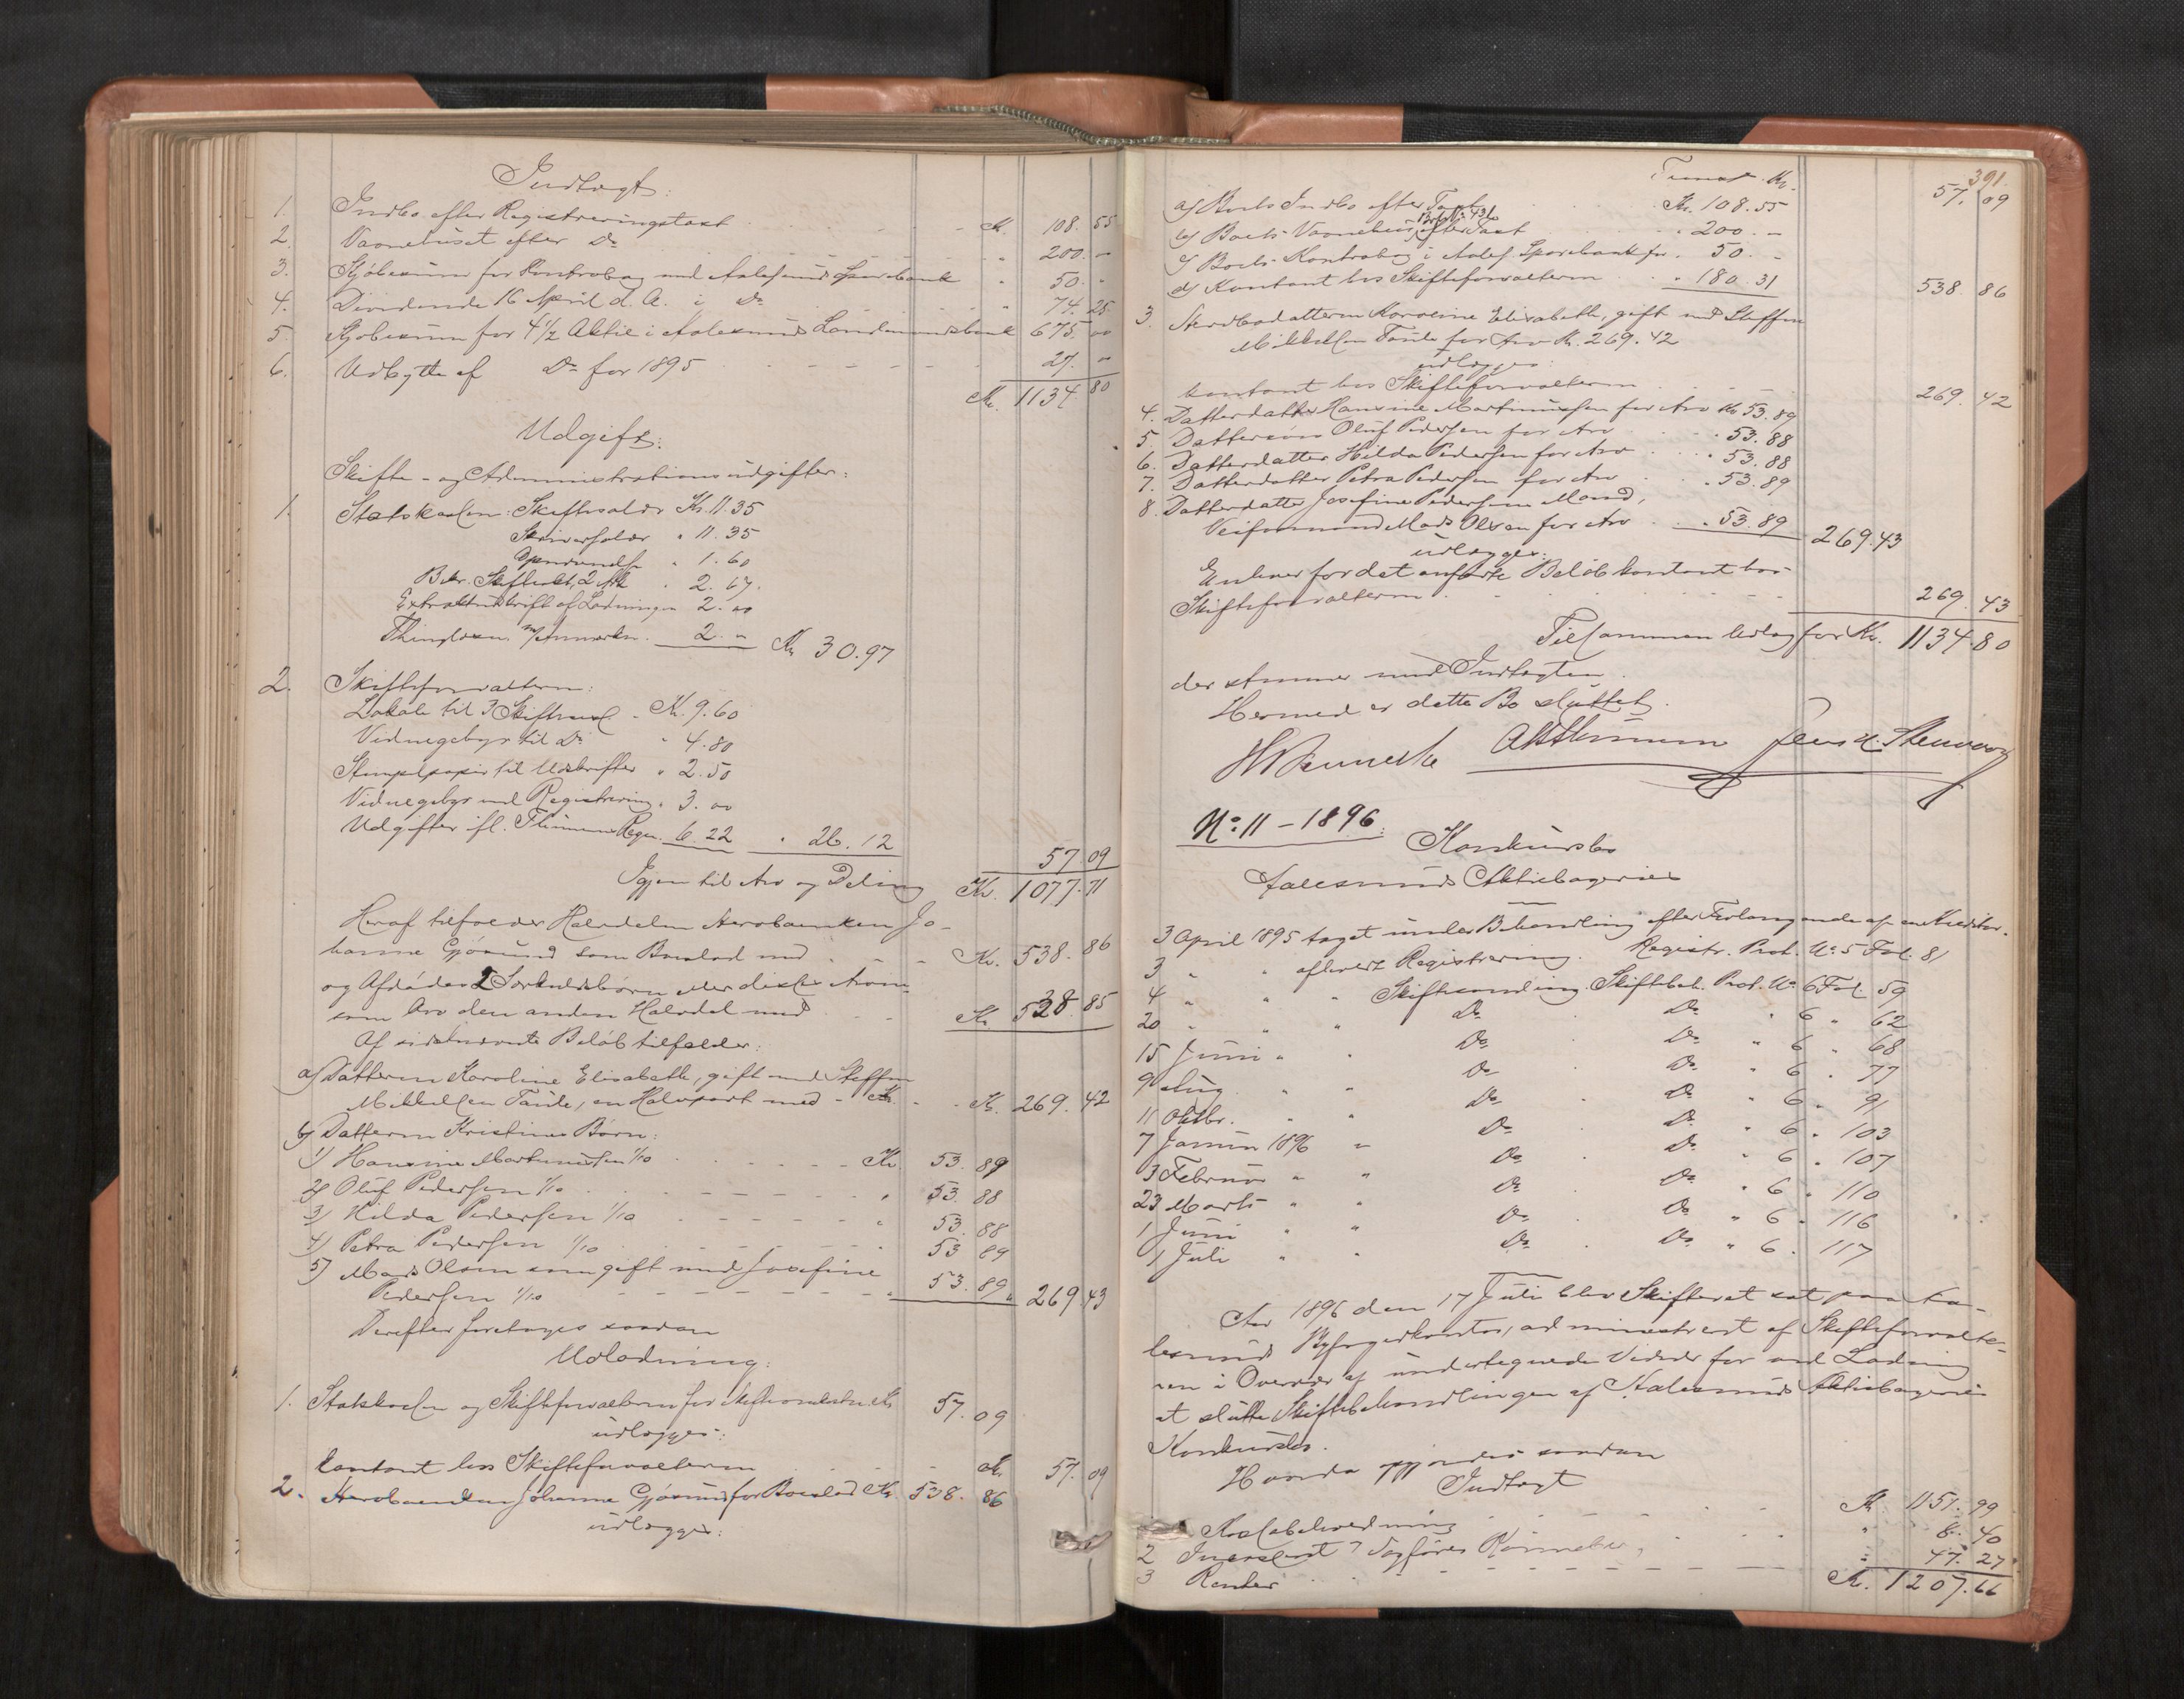 Indtægt:
1. Indbo efter Registreringstaxt Kr. 108. 55
2. Vaaningshuset efter Do " 200. "
3. Kjøbesum for Kontrabog med Aalesunds Sparebank " 50. "
4. Dividende 16 April d. A. i Do " 74. 25
5. Kjøbesum for 4 1/2 Aktie i Aalesunds Landmandsbank 675. 00
6. Udbytte af Do for 1895 27. "
Kr. 1134 80
Udgift:
Skifte- og Administrationsudgifter:
1. Statskassen: Skiftesalær Kr. 11.35
Skriversalær " 11.35
" 1.60
Bekr. 2 " 2.67.
Extraktudskrift af Lodningen 2. 00
Thinglæsn. m/Anmærkn. 2. " Kr 30.97
2. Skifteforvalteren:
Lokale til 3 Kr. 9.60
Vidnegebyr til Do " 4.80
Stempelpapir til Udskrifter " 2.50
Vidnegebyr ved Registrering " 3. 00
Udgifter ifl. Regn. 6.22 " 26.12
57.09
Igjen til Arv og Deling Kr. 1077.71
Heraf tilfalder Halvdelen Stervboenken Jo-
hanne Gjøsund som Boeslod med Kr. 538. 86
og Afdødes 2 eller disses
som Arv den anden Halvdel med Kr. 538.85
Af sidstnævnte Beløb tilfalder:
a) Datteren Karoline Elisabeth, gift med Steffen
Mikkelsen , en Halvpart med Kr. 269. 42
b) Datteren Kristines Børn:
1) Hansine Martinussen 1/10 Kr. 53. 89
2) Oluf Pedersen 1/10 " 53. 88
3) Hilda Pedersen 1/10 " 53. 88
4) Petra Pedersen 1/10 " 53 89
5) Mads Olsen som gift med Josefine
Pedersen 1/10 " 53.89 " 269.43
Derefter foretages saadan
Udlodning:
1. Statskassen og Skifteforvalteren for Kr 57.09
udlægges:
kontant hos Skifteforvalteren Kr. 57.09
2. Stervboenken Johanne Gjøsund for Boeslod Kr. 538. 86
udlægges:
391.
Transp. Kr. 57. 09
a) Boets Indbo efter Taxt Kr. 108.55
b) Boets Vaaningshus efter Taxt " 200. -
c) Boets Kontrabog i Aales. Sparebank for " 50. -
d) Kontant hos Skifteforvalteren " 180.31 538. 86
3. Stervbodatteren Karoline Elisabeth, gift med Steffen
Mikkelsen for Arv Kr. 269.42
udlægges:
kontant hos Skifteforvalteren 269. 42
4. Datterdatter Hansine Martinussen for Arv Kr 53.89
5. Dattersøn Oluf Pedersen for Arv " 53.88
6. Datterdatter Hilda Pedersen for Arv " 53.88
7. Datterdatter Petra Pedersen for Arv " 53.89
8. Datterdatter Josefine Pedersens Mand,
Veiformand Mads Olsen for Arv " 53.89 269.43
udlægges:
Enhver for det anførte Beløb kontant hos
Skifteforvalteren 269. 43
Tilsammen Udlæg for Kr. 1134.80
der stemmer med Indtægten.
Hermed er dette Bo sluttet.
No. 11 - 1896.
Konkursbo
Aalesunds Aktiebageries
3 April 1895 taget under Behandling efter Forlangende af en Kreditor.
3 " " afholdt Registrering. Registr. Prot. No 5 Fol. 81
4 " " " Skiftesamling. Skiftebeh. Prot. No 6 Fol. 59
20 " " " Do Do " 6 " 62
15 Juni " " Do Do " 6 " 68
9 Aug. " " Do Do " 6 " 77
11 Oktbr. " " Do Do " 6 " 91
7 Januar 1896 " Do Do " 6 " 103
3 Februar " " Do Do " 6 " 107
23 Marts " " Do Do " 6 " 110
1 Juni " " Do Do " 6 " 116
1 Juli " " Do Do " 6 " 117
Aar 1896 den 17 Juli blev Skifteret sat paa Aa-
lesunds Byfogedkontor, administreret af Skifteforvalte-
ren i Overvær af undertegnede Vidner for ved Lodning
at slutte Skiftebehandlingen af Aalesunds Aktiebageries
Konkursbo.
saadan
Indtægt
Kassebeholdning Kr. 1151. 99
2 " 8. 40
3 Renter " 47. 27
Kr. 1207.66